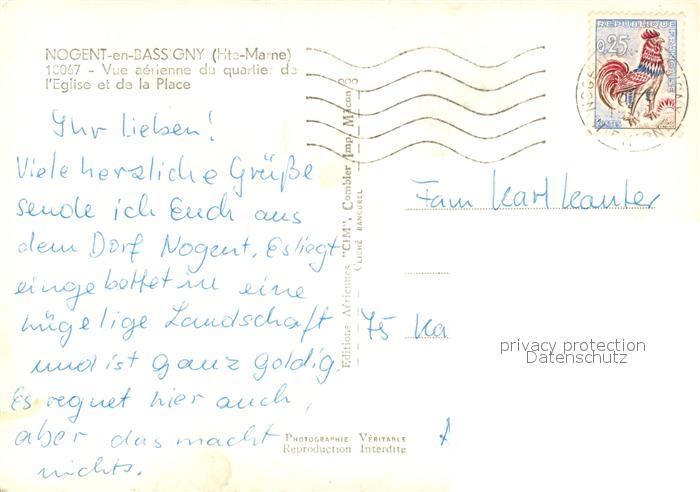 NOGENT-en-BASSIGNY (Hte-Marne)
10067 - Vue aérienne du quartier de
l'Eglise et de la Place
Ihr lieben!
Viele herzliche Grüße
sende ich Euch aus
dem Dorf Nogent. Es liegt
eingebettet in eine
hügelige Landschaft
und ist ganz goldig.
Es regnet hier auch,
aber das macht
nichts.
Editions Aériennes "CIM", Combier Imp. Macon
CLICHÉ RANCUREL
PHOTOGRAPHIE VÉRITABLE
Reproduction Interdite
REPUBLIQUE
FRANÇAISE
0,25
POSTES
Fam Karl Kanter
75 Ka
privacy protection
Datenschutz